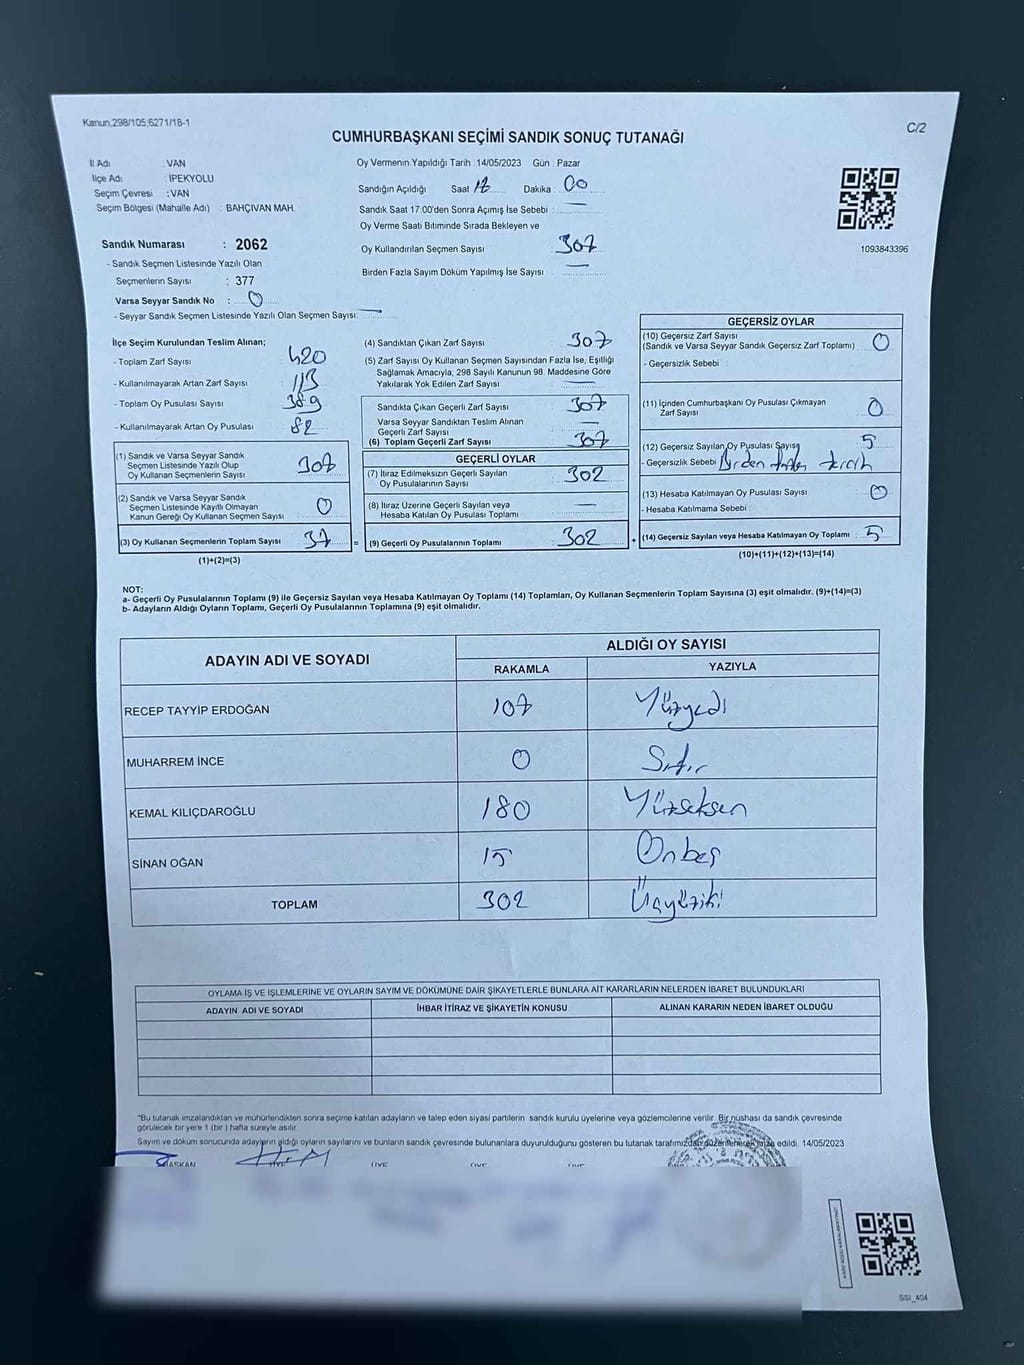 Kanun,298/105,6271/1B-1
C/2
CUMHURBAŞKANI SEÇİMİ SANDIK SONUÇ TUTANAĞI
İl Adı : VAN
İlçe Adı : İPEKYOLU
Seçim Çevresi : VAN
Seçim Bölgesi (Mahalle Adı) : BAHÇIVAN MAH.
Sandık Numarası : 2062
- Sandık Seçmen Listesinde Yazılı Olan
Seçmenlerin Sayısı : 377
Varsa Seyyar Sandık No : 0
- Seyyar Sandık Seçmen Listesinde Yazılı Olan Seçmen Sayısı: —
Oy Vermenin Yapıldığı Tarih : 14/05/2023 Gün : Pazar
Sandığın Açıldığı Saat Dakika : 00
Sandık Saat 17:00'den Sonra Açımış İse Sebebi : —
Oy Verme Saati Bitiminde Sırada Bekleyen ve
Oy Kullandırılan Seçmen Sayısı 307
Birden Fazla Sayım Döküm Yapılmış İse Sayısı : —
1093843396
İlçe Seçim Kurulundan Teslim Alınan;
- Toplam Zarf Sayısı 420
- Kullanılmayarak Artan Zarf Sayısı 113
- Toplam Oy Pusulası Sayısı 389
- Kullanılmayarak Artan Oy Pusulası 82
(1) Sandık ve Varsa Seyyar Sandık
Seçmen Listesinde Yazılı Olup
Oy Kullanan Seçmenlerin Sayısı 307
(2) Sandık ve Varsa Seyyar Sandık
Seçmen Listesinde Kayıtlı Olmayan
Kanun Gereği Oy Kullanan Seçmen Sayısı 0
(3) Oy Kullanan Seçmenlerin Toplam Sayısı 37 =
(1)+(2)=(3)
(4) Sandıktan Çıkan Zarf Sayısı 307
(5) Zarf Sayısı Oy Kullanan Seçmen Sayısından Fazla İse, Eşitliği
Sağlamak Amacıyla, 298 Sayılı Kanunun 98. Maddesine Göre
Yakılarak Yok Edilen Zarf Sayısı —
Sandıkta Çıkan Geçerli Zarf Sayısı 307
Varsa Seyyar Sandıktan Teslim Alınan
Geçerli Zarf Sayısı —
(6) Toplam Geçerli Zarf Sayısı 307
GEÇERLİ OYLAR
(7) İtiraz Edilmeksizin Geçerli Sayılan
Oy Pusulalarının Sayısı 302
(8) İtiraz Üzerine Geçerli Sayılan veya
Hesaba Katılan Oy Pusulası Toplamı —
(9) Geçerli Oy Pusulalarının Toplamı 302 +
GEÇERSİZ OYLAR
(10) Geçersiz Zarf Sayısı
(Sandık ve Varsa Seyyar Sandık Geçersiz Zarf Toplamı) 0
- Geçersizlik Sebebi :
(11) İçinden Cumhurbaşkanı Oy Pusulası Çıkmayan
Zarf Sayısı 0
(12) Geçersiz Sayılan Oy Pusulası Sayısı 5
- Geçersizlik Sebebi Birden fazla tercih
(13) Hesaba Katılmayan Oy Pusulası Sayısı 0
- Hesaba Katılmama Sebebi :
(14) Geçersiz Sayılan veya Hesaba Katılmayan Oy Toplamı 5
(10)+(11)+(12)+(13)=(14)
NOT:
a- Geçerli Oy Pusulalarının Toplamı (9) ile Geçersiz Sayılan veya Hesaba Katılmayan Oy Toplamı (14) Toplamları, Oy Kullanan Seçmenlerin Toplam Sayısına (3) eşit olmalıdır. (9)+(14)=(3)
b- Adayların Aldığı Oyların Toplamı, Geçerli Oy Pusulalarının Toplamına (9) eşit olmalıdır.
ADAYIN ADI VE SOYADI
ALDIĞI OY SAYISI
RAKAMLA YAZIYLA
RECEP TAYYİP ERDOĞAN 107 Yüzyedi
MUHARREM İNCE 0 Sıfır
KEMAL KILIÇDAROĞLU 180 Yüzseksen
SİNAN OĞAN 15 Onbeş
TOPLAM 302 Üçyüziki
OYLAMA İŞ VE İŞLEMLERİNE VE OYLARIN SAYIM VE DÖKÜMÜNE DAİR ŞİKAYETLERLE BUNLARA AİT KARARLARIN NELERDEN İBARET BULUNDUKLARI
ADAYIN ADI VE SOYADI İHBAR İTİRAZ VE ŞİKAYETİN KONUSU ALINAN KARARIN NEDEN İBARET OLDUĞU
"Bu tutanak imzalandıktan ve mühürlendikten sonra seçime katılan adayların ve talep eden siyasi partilerin sandık kurulu üyelerine veya gözlemcilerine verilir. Bir nüshası da sandık çevresinde
görülecek bir yere 1 (bir ) hafta süreyle asılır.
Sayım ve döküm sonucunda adayların aldığı oyların sayılarını ve bunların sandık çevresinde bulunanlara duyurulduğunu gösteren bu tutanak tarafımızdan düzenlenerek imza edildi. 14/05/2023
BAŞKAN ÜYE ÜYE ÜYE ÜYE
SSI_404